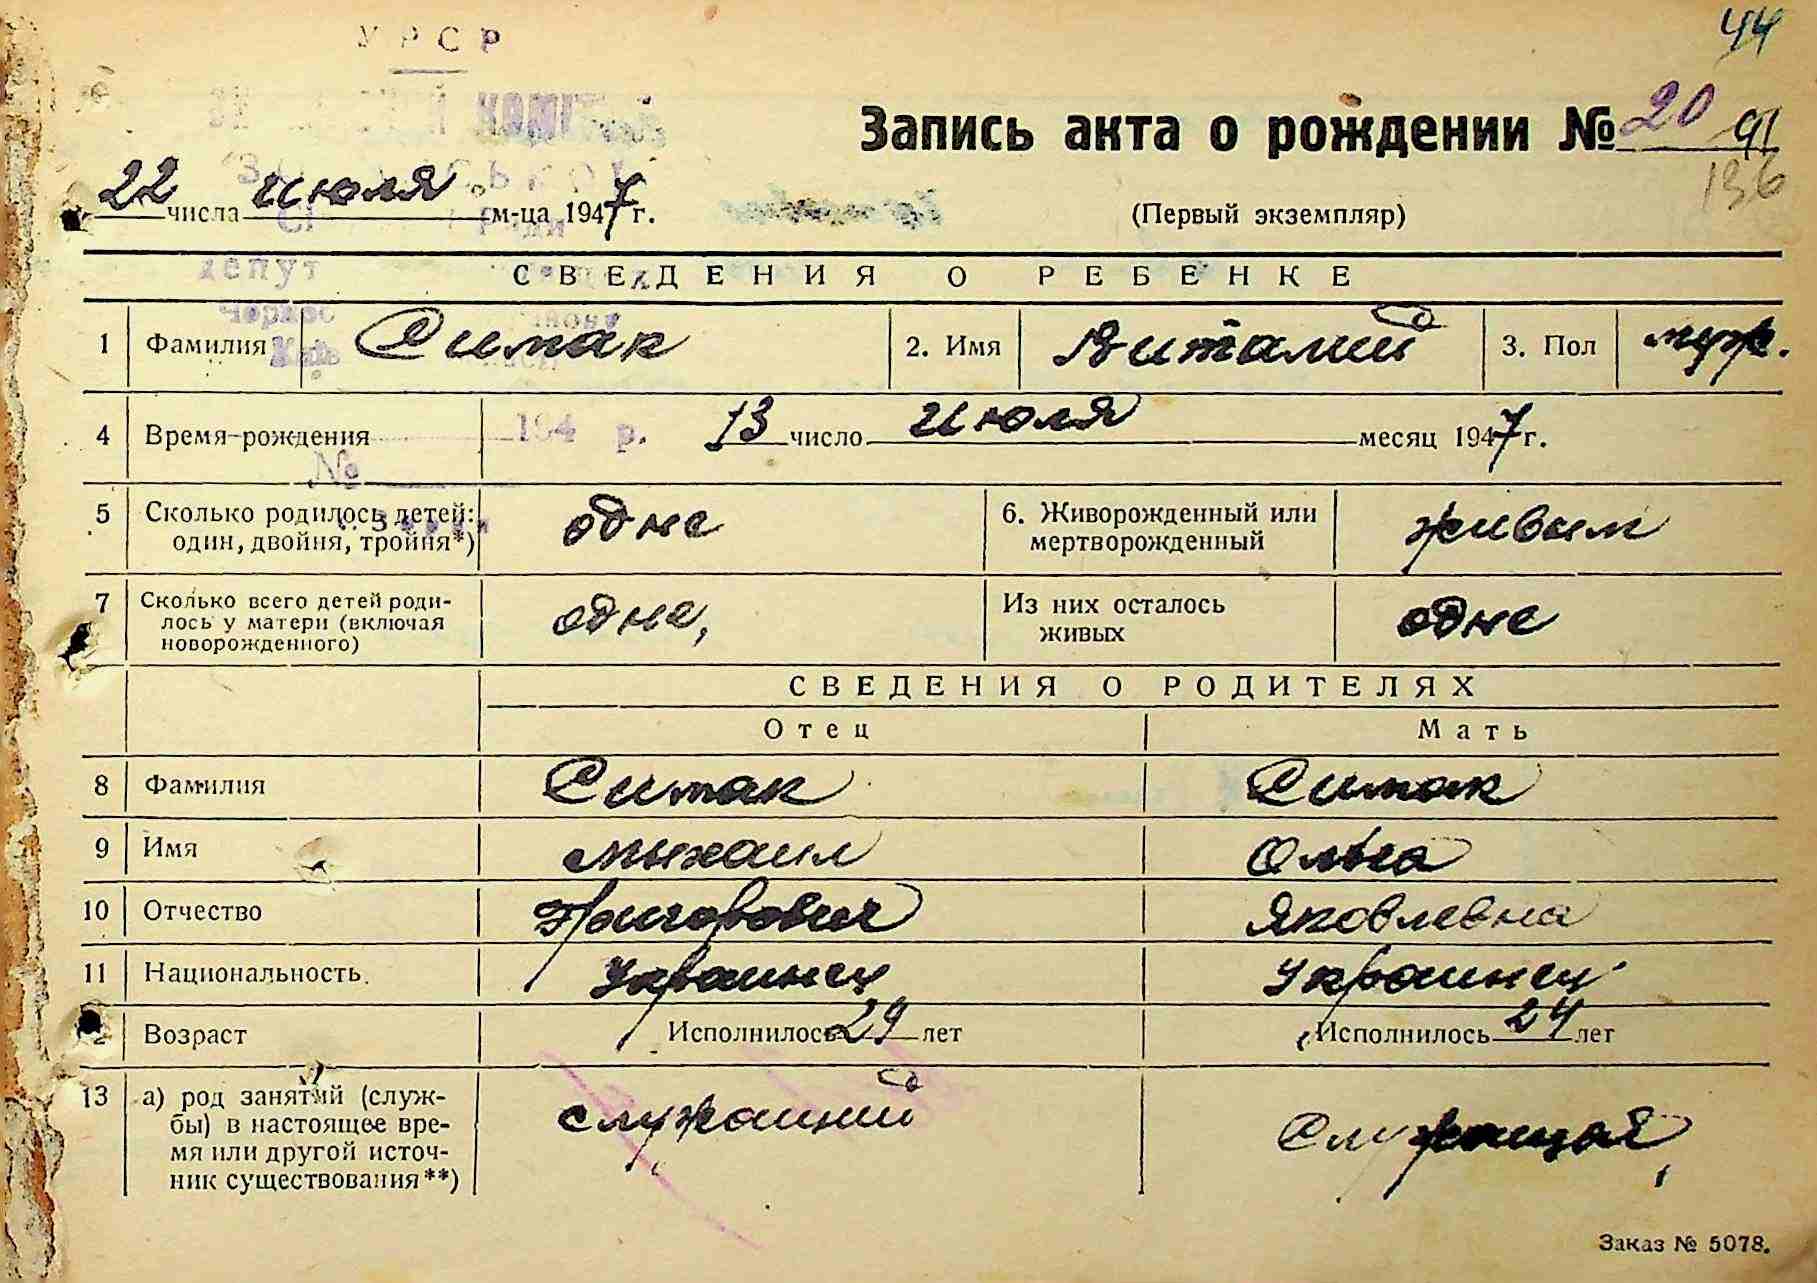 44
УРСР
Запись акта о рождении № 20 91
136
22 числа июля м-ца 1947 г.
(Первый экземпляр)
СВЕДЕНИЯ О РЕБЕНКЕ
1 Фамилия Симак 2. Имя Виталий 3. Пол муж.
4 Время рождения 13 число июля месяц 1947 г.
194 р.
№
5 Сколько родилось детей: одне 6. Живорожденный или живым
один, двойня, тройня*) мертворожденный
7 Сколько всего детей роди- одне, Из них осталось одне
лось у матери (включая живых
новорожденного)
СВЕДЕНИЯ О РОДИТЕЛЯХ
Отец Мать
8 Фамилия Симак Симак
9 Имя Михаил Ольга
10 Отчество Григорович Яковлевна
11 Национальность Украинец Украинец
Возраст Исполнилось 29 лет Исполнилось 24 лет
13 а) род занятий (служ- служащий Служащая
бы) в настоящее вре-
мя или другой источ-
ник существования**)
Заказ № 5078.